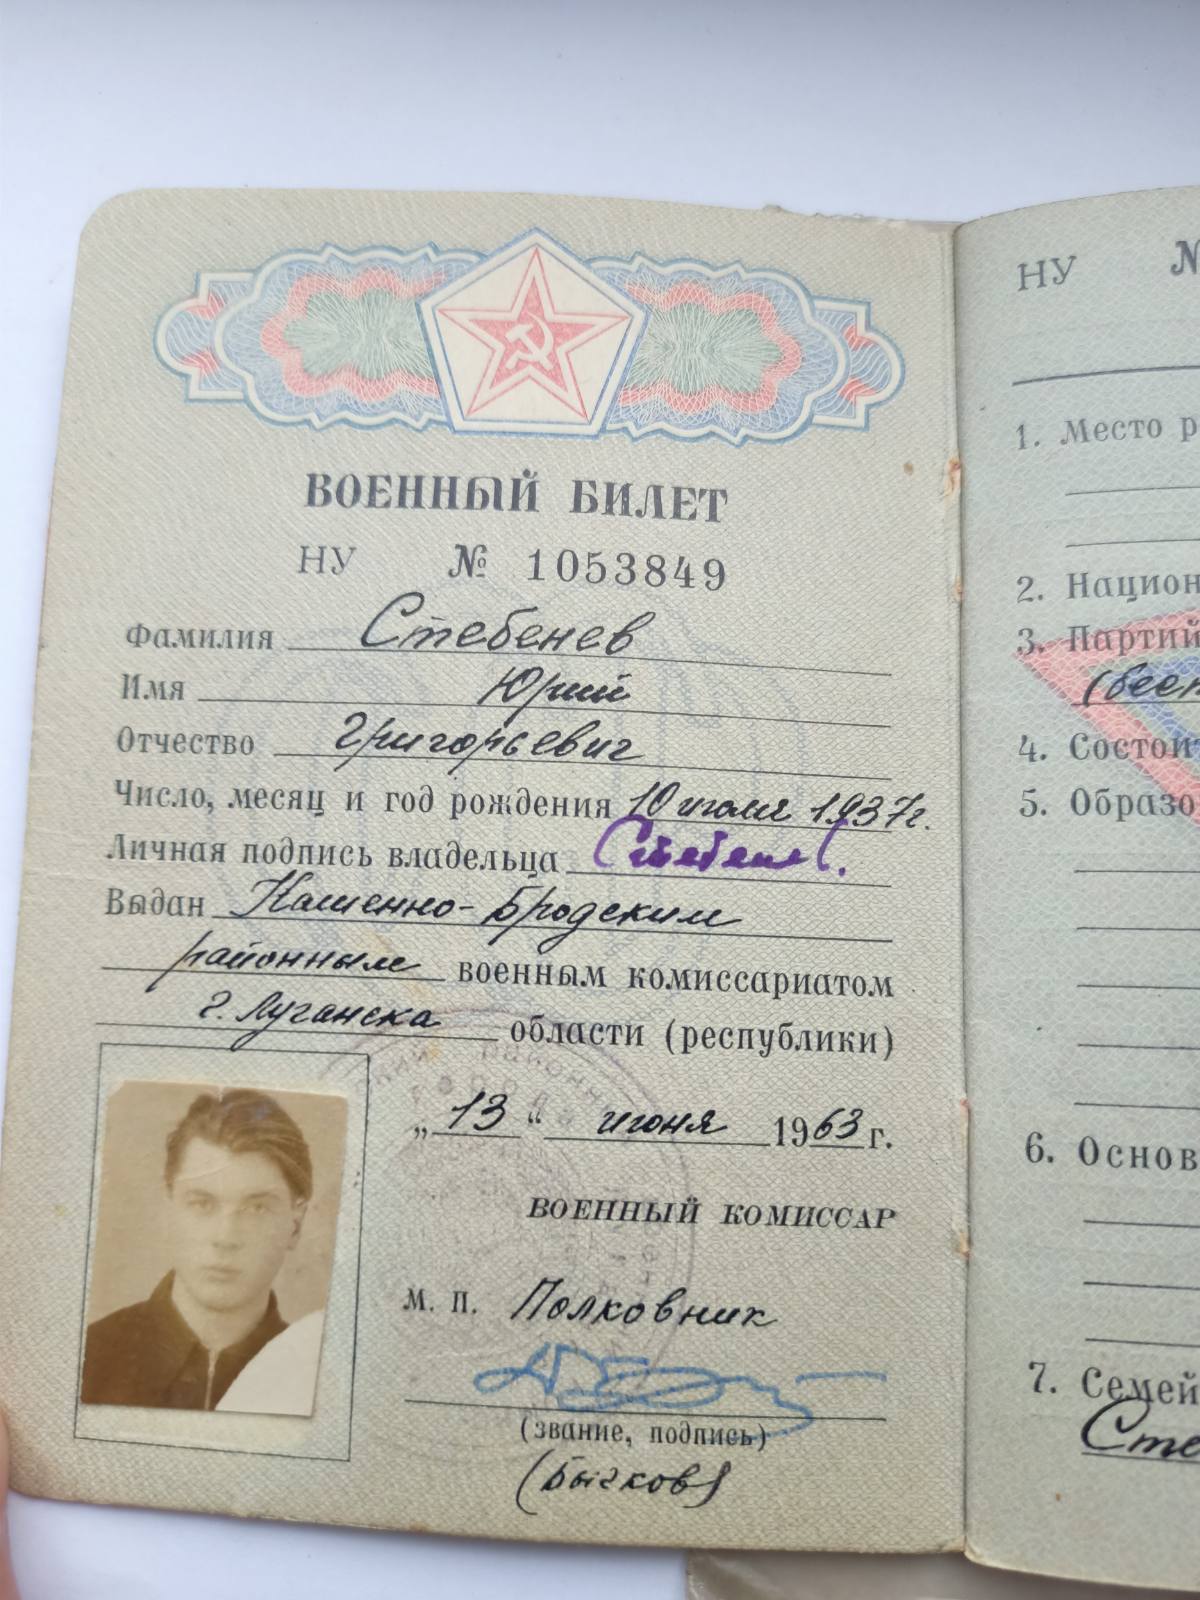 ВОЕННЫЙ БИЛЕТ
НУ № 1053849
Фамилия Стебенев
Имя Юрий
Отчество Григорьевич
Число, месяц и год рождения 10 июля 1937г.
Личная подпись владельца Стебенев
Выдан Каменно-Бродским
районным военным комиссариатом
г. Луганска области (республики)
„13“ июня 1963 г.
ВОЕННЫЙ КОМИССАР
М. П. Полковник
(звание, подпись)
(Бычков)
НУ №
1. Место р
2. Национ
3. Партий
(бесп
4. Состоит
5. Образо
6. Основ
7. Семей
Сте